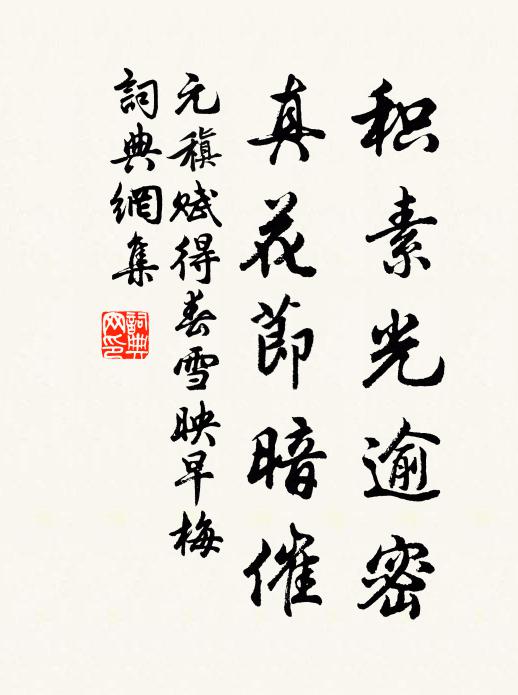 积素光逾密
真花節暗催
元稹赋得春雪映早梅
詞典網集
詞典网印